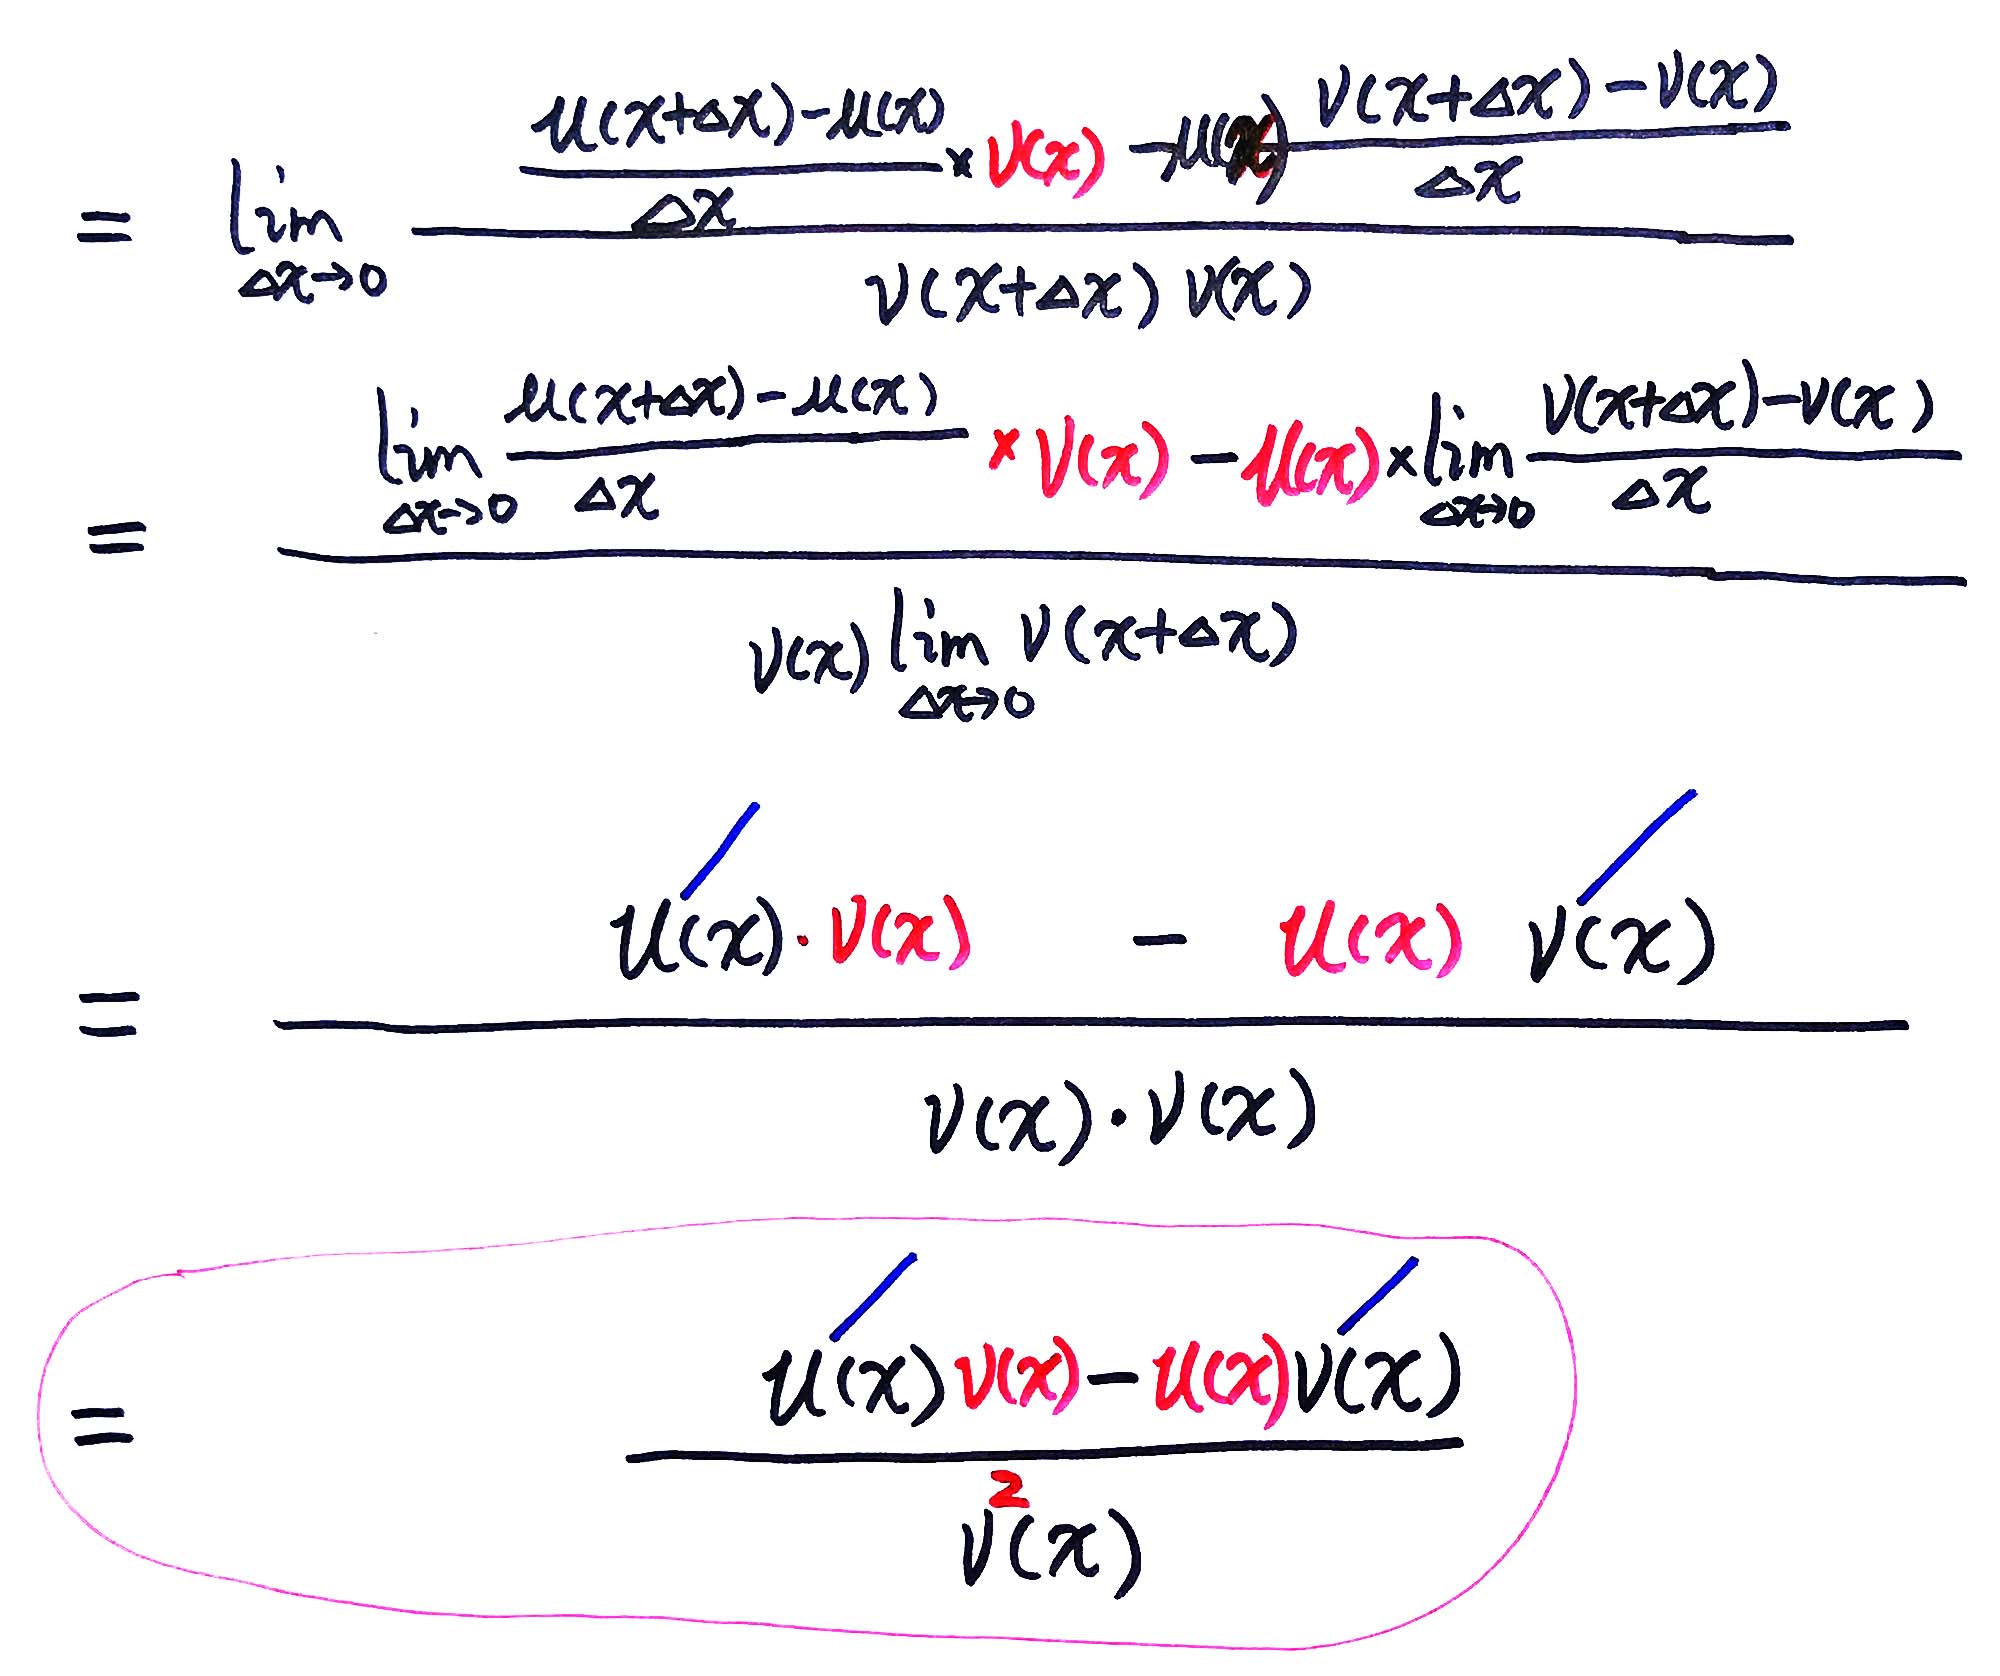 = lim Δx→0 ((u(x+Δx)-u(x))/Δx × v(x) - u(x) (v(x+Δx)-v(x))/Δx) / (v(x+Δx) v(x))
= (lim Δx→0 (u(x+Δx)-u(x))/Δx × v(x) - u(x) × lim Δx→0 (v(x+Δx)-v(x))/Δx) / (v(x) lim Δx→0 v(x+Δx))
= (u′(x)·v(x) - u(x) v′(x)) / (v(x)·v(x))
= (u′(x)v(x)-u(x)v′(x)) / v²(x)